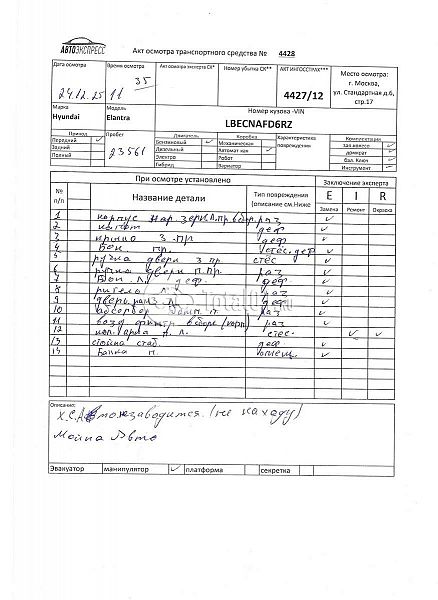 АВТОЭКСПРЕСС
Акт осмотра транспортного средства № 4428
Дата осмотра
Время осмотра
Акт осмотра эксперта СК*
Номер убытка СК**
АКТ ИНГОССТРАХ***
Место осмотра:
г. Москва,
ул. Стандартная д.6,
стр.17
24.12.25
11 35
4427/12
Марка
Модель
Номер кузова -VIN
Hyundai
Elantra
LBECNAFD6RZ
Привод
Пробег
Двигатель
Коробка
Характеристика повреждения
Комплектация
Передний ✓
Задний
Полный
23561
Бензиновый ✓
Дизельный
Электро
Гибрид
Механическая
Автомат кая ✓
Робот
Вариатор
зап.колесо ✓
домкрат
бал. Ключ ✓
Инструмент ✓
При осмотре установлено
Заключение эксперта
№ п/п
Название детали
Тип повреждения
(описание см.Ниже
E I R
Замена Ремонт Окраска
1 корпус нар. зеркала пр в сбор. раз ✓
2 капот деф ✓
3 крыло з. пр деф ✓
4 пр. ✓
5 ручка двери з пр стес ✓
6 ручка двери п.пр раз ✓
7 л. деф. деф. ✓
8 л раз ✓
9 дверь л деф ✓
10 абсорбер п. раз ✓
11 возд фильтр в сборе (корп) раз ✓
12 арка л. стес. ✓ ✓
13 стойка стаб. деф. ✓
13 п. ✓
Описание:
Х.С.А Авто не заводится. (не на ходу)
Мойка Авто
Эвакуатор манипулятор ✓ платформа секретка